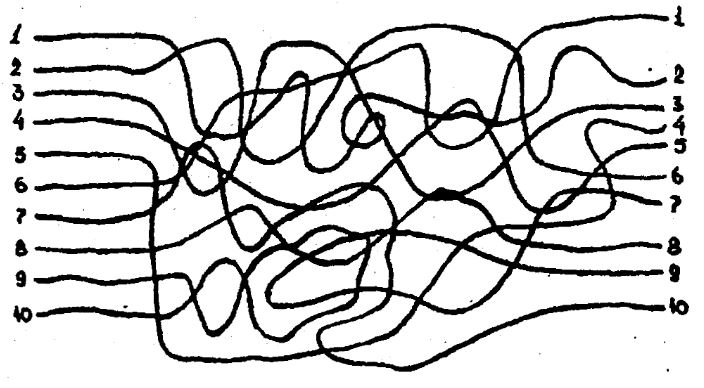 1
2
3
4
5
6
7
8
9
10
1
2
3
4
5
6
7
8
9
10